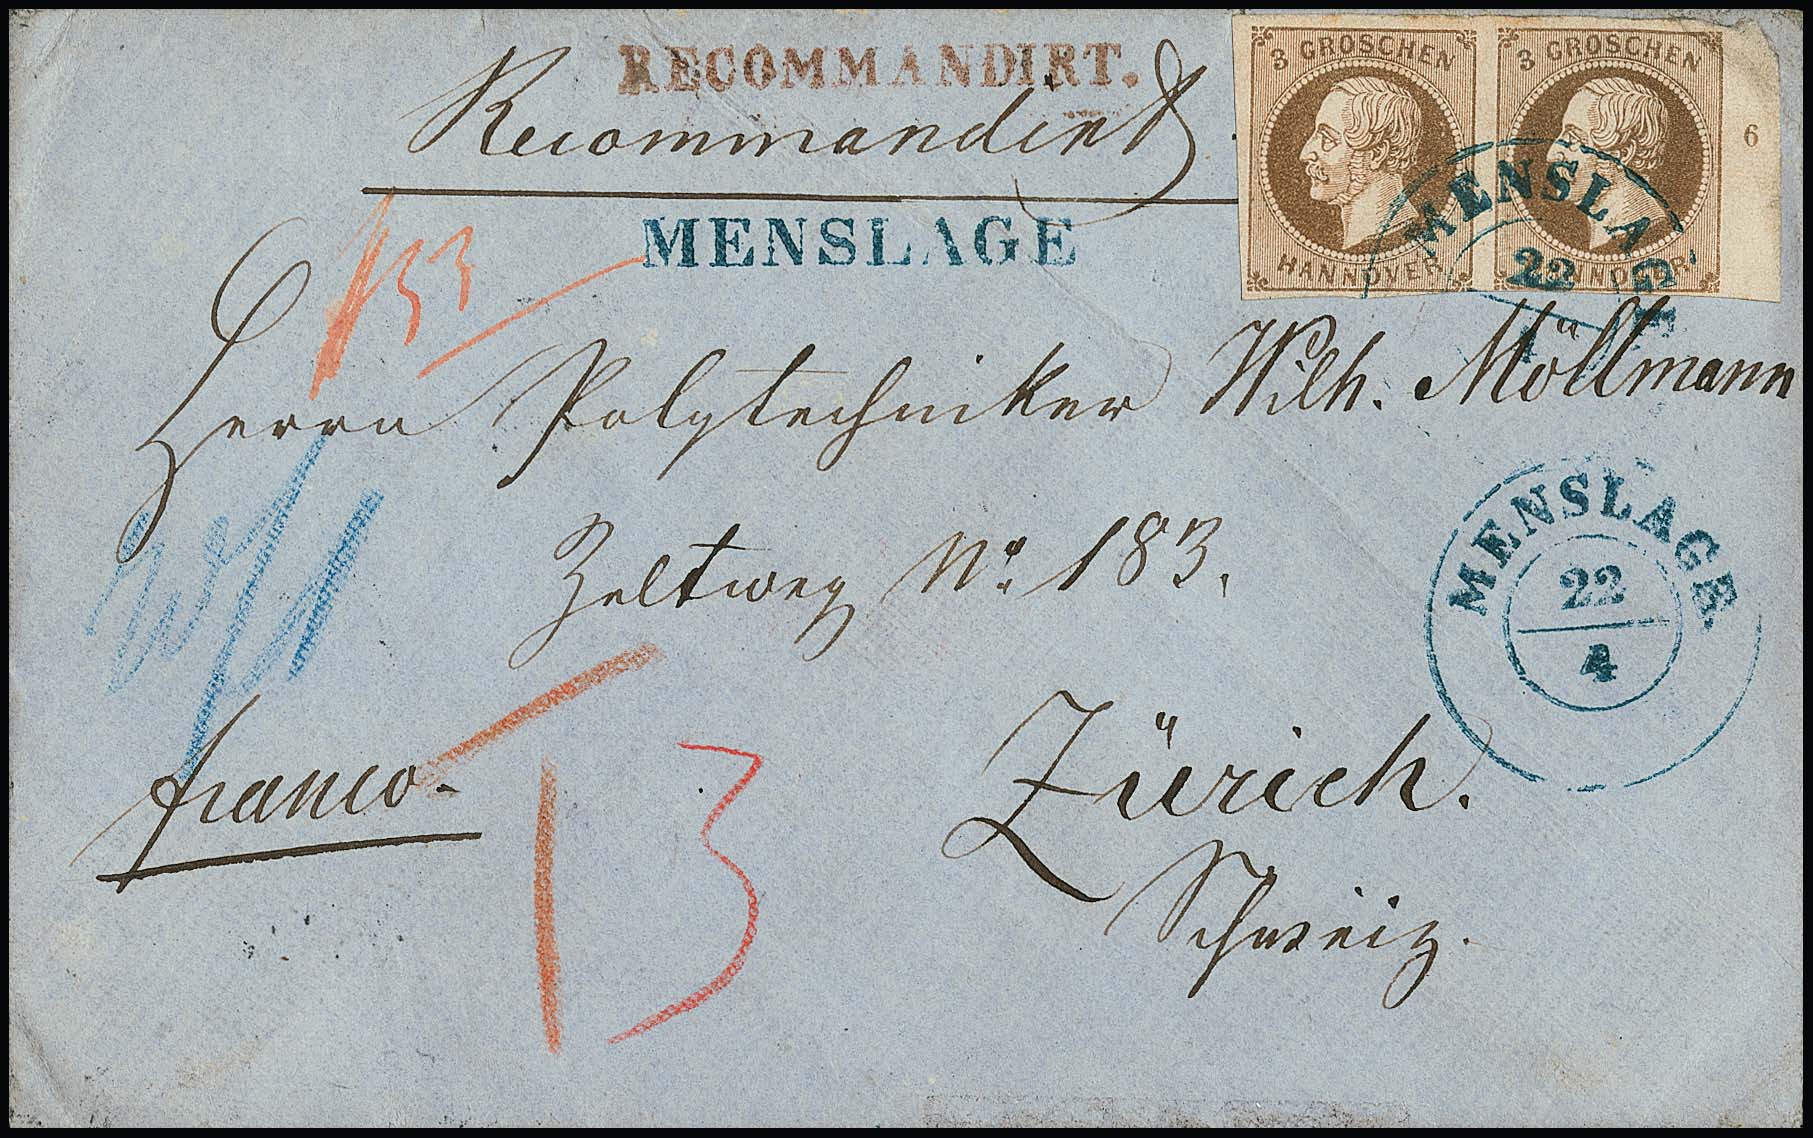 RECOMMANDIRT.
Recommandirt
MENSLAGE
3 GROSCHEN
HANNOVER
3 GROSCHEN
HANNOVER
6
MENSLAGE
22
133
Herrn Polytechniker Wilh. Möllmann
Zeltweg No 183.
MENSLAGE
22
4
franco-
Zürich.
Schweiz.
3